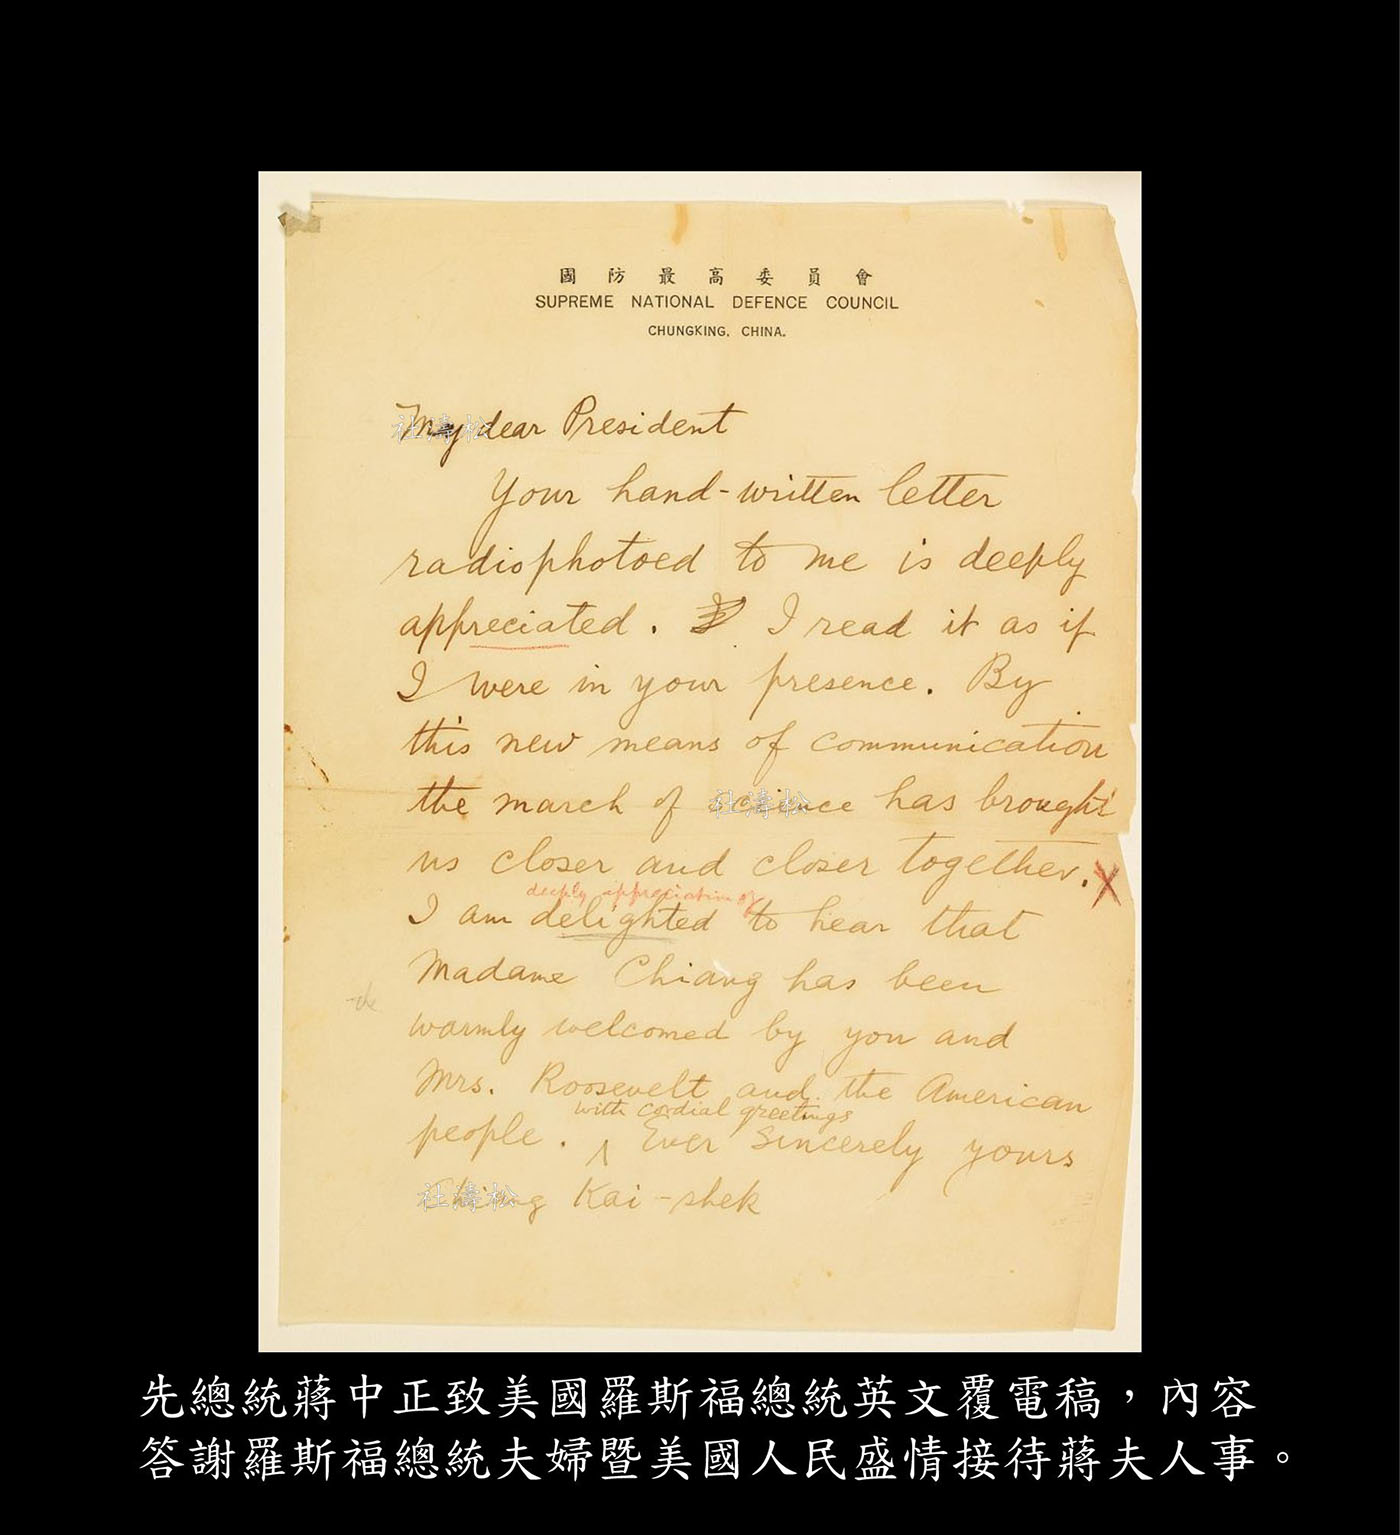 國防最高委員會
SUPREME NATIONAL DEFENCE COUNCIL
CHUNGKING, CHINA.
My dear President
Your hand-written letter
radiophotoed to me is deeply
appreciated. I read it as if
I were in your presence. By
this new means of communication
the march of science has brought
us closer and closer together.
deeply appreciation of
I am delighted to hear that
Madame Chiang has been
warmly welcomed by you and
Mrs. Roosevelt and the American
with cordial greetings
people. Ever Sincerely yours
Chiang Kai-shek
社濤松
社濤松
社濤松
先總統蔣中正致美國羅斯福總統英文覆電稿，內容
答謝羅斯福總統夫婦暨美國人民盛情接待蔣夫人事。